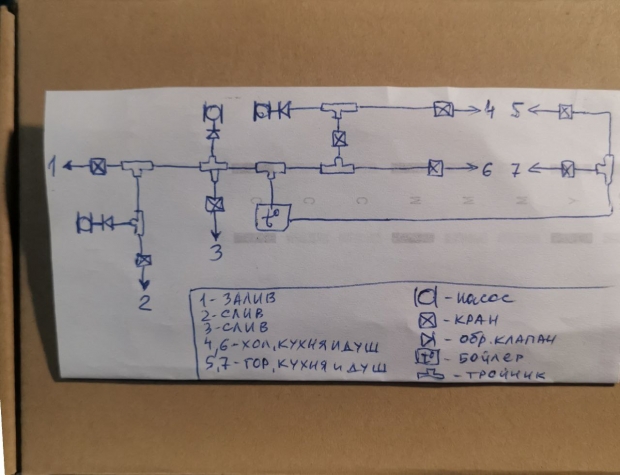 1
4
5
6
7
t°
3
2
1- ЗАЛИВ
2- СЛИВ
3- СЛИВ
4,6- ХОЛ, КУХНЯ И ДУШ
5,7- ГОР, КУХНЯ И ДУШ
- НАСОС
- КРАН
- ОБР. КЛАПАН
t° - БОЙЛЕР
- ТРОЙНИК